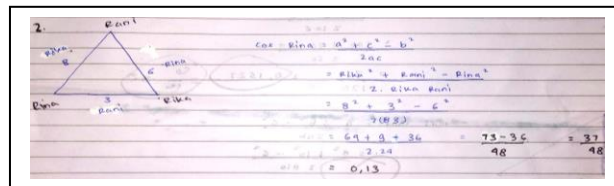 2.
Rani
Rika
8
6
Rina
Rina
3
Rani
Rika
Cos Rina = a² + c² - b²
2ac
= Rika² + Rani² - Rina²
2. Rika Rani
= 8² + 3² - 6²
= 64 + 9 + 36 = 73-36 = 37
2.24 48 48
= 0,13